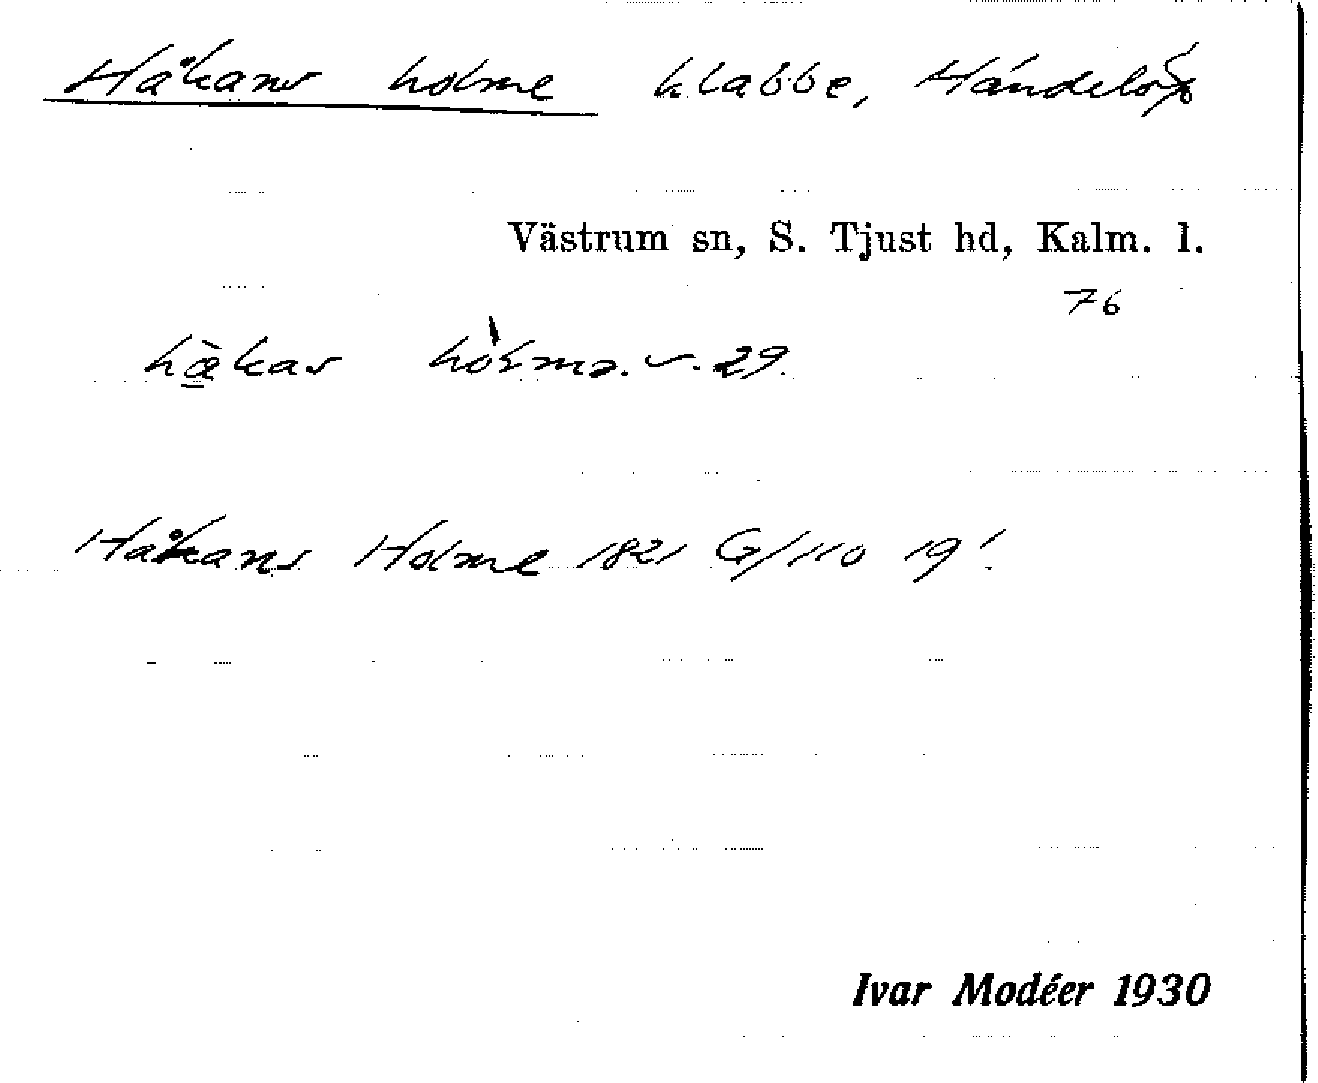 Håkans holme klabbe, Händelöp
Västrum sn, S. Tjust hd, Kalm. l.
76
29.
Håkans Holme 1821 G/110 19!
Ivar Modéer 1930